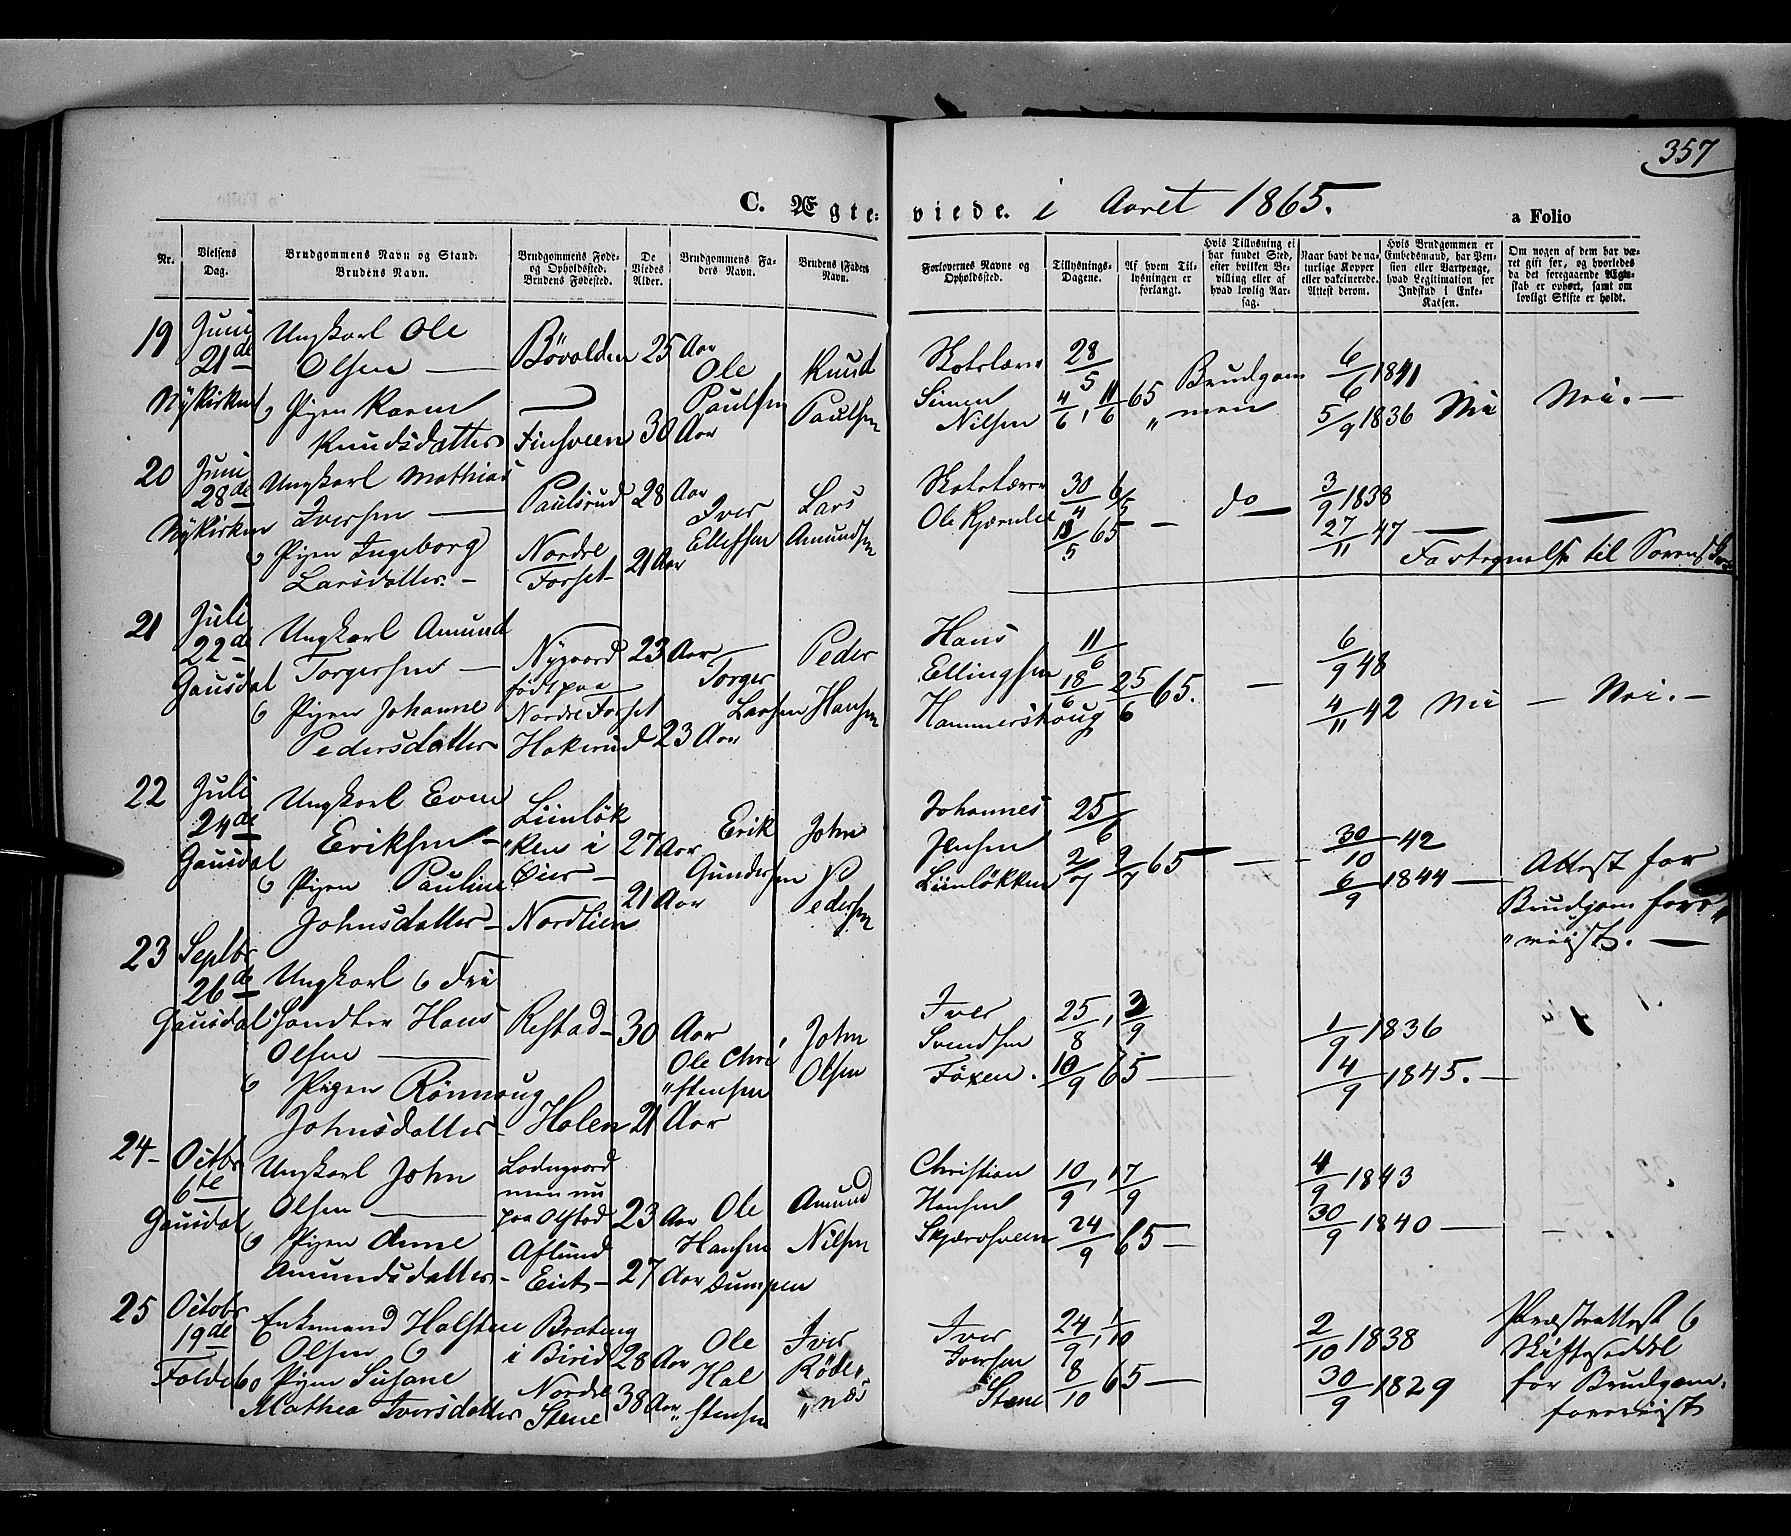 357
C. Ægteviede. i Aaret 1865.
a Folio
Nr.
Vielsens Dag.
Brudgommens Navn og Stand: Brudens Navn.
Brudgommens Føde- og Opholdssted. Brudens Fødested.
De Viedes Alder.
Brudgommens Faders Navn.
Brudens Faders Navn.
Forlovernes Navne og Opholdssted.
Tillysnings-Dagene.
Af hvem Tillysningen er forlangt.
Hvis Tillysning ei har fundet Sted, efter hvilken Bevilling eller af hvad lovlig Aarsag.
Naar havt de naturlige Kopper eller vakcinerede. Attest derom.
Hvis Brudgommen er Embedsmand, har Pension eller Vartpenge, hvad Legitimation for Indskud i Enke-Kassen.
Om nogen af dem har været gift før, og hvorledes da det foregaaende Ægteskab er ophørt, samt om lovligt Skifte er holdt.
19 Juni 21de Nykirken
Ungkarl Ole
Olsen —
Pigen Karen
Knudsdatter
Bövolden
25 Aar
Ole
Paulsen
Knud
Paulsen
30 Aar
Simen
Nilsen
28/5
4/6, 11/6 65
Brudgom
„men
6/6 1841
5/9 1836
Nei
Nei. —
20 Juni 28de Nykirken
Ungkarl Mathias
Iversen —
& Pigen Ingeborg
Larsdatter. —
Paulsrud
Nordre
Forset
28 Aar
21 Aar
Iver
Ellefsen
Lars
Amundsen
Ole Kjærnlie
30/4
65 —
do
3/9 1838
27/11 47
21 Juli 22de Gausdal
Ungkarl Amund
Torgersen —
& Pigen Johanne
Pedersdatter
Nygaard
født paa
Nordre Forset
Hokerud
23 Aar
23 Aar
Torger
Larsen
Peder
Hansen
Hans
Ellingsen
Hammershoug
11/6
18/6 25/6 65.
6/9 48
4/11 42
Nei — Nei. —
22 Juli 24de Gausdal
Ungkarl Even
Eriksen —
& Pigen Pauline
Johnsdatter —
Liinløk
„ken i
Øier —
Nordlien
27 Aar
21 Aar
Erik
Gundersen
John
Pedersen
Johannes
Jensen
Liinløkken
25/6
2/7 9/7 65
30/10 42
6/9 1844 —
Attest for
Brudgom fore„
„viist. —
23 Septbr 26de Gausdal
Ungkarl & Fri
„handler Hans
Olsen —
& Pigen Rönnoug
Johnsdatter
Restad —
Holen
30 Aar
21 Aar
Ole Chri
„stensen
John
Olsen
Iver
Svendsen
Foxen.
25/8, 3/9
10/9 65 —
1/9 1836
14/9 1845. —
24 — Octbr 6te Gausdal
Ungkarl John
Olsen —
& Pigen Anne
Amundsdatter —
Ladegaard
men nu
paa Olstad
Aslund
Eiet —
23 Aar
27 Aar
Ole
Hansen
Dumpen
Amund
Nilsen
Christian
Hansen
Skjærsveen
10/9, 17/9
24/9 65 —
4/9 1843
30/9 1840 —
25 Octobr 19de
Enkemand Halsten
Olsen &
Pigen Susane
Mathea Iversdatter
Brateng
i Birid
Nordre
Stene
28 Aar
38 Aar
Ole
Hal
„stensen
Iver
Röder
„næs
Iver
Iversen
Stene
24/9, 1/10
8/10 65 —
2/10 1838
30/9 1829
Præsteattest &
Skifteseddel
for Brudgom.
foreviist